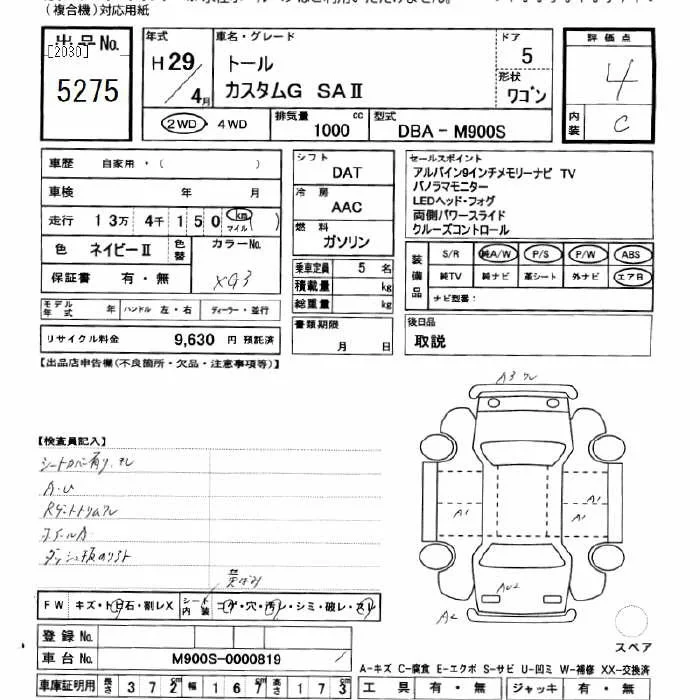 (複合機)対応用紙
出品No.
[2030]
5275
年式
H29/4月
車名・グレード
トール
カスタムG SAⅡ
ドア
5
形状
ワゴン
評価点
4
内装
C
2WD・4WD
排気量
1000 cc
型式
DBA-M900S
車歴 自家用・( )
車検 年 月
走行 13万 4千 150 km マイル ( )
色 ネイビーⅡ 色替 カラーNo.
XG3
保証書 有・無
モデル年式 年 ハンドル 左・右 ディーラー・並行
リサイクル料金 9,630 円 預託済
シフト
DAT
冷房
AAC
燃料
ガソリン
乗車定員 5 名
積載量 kg
総重量 kg
書類期限
月 日
セールスポイント
アルパイン9インチメモリーナビ TV
パノラマモニター
LEDヘッド・フォグ
両側パワースライド
クルーズコントロール
装備品
S/R 純A/W P/S P/W ABS
純TV 純ナビ 革シート 外ナビ エアB
ナビ型番:
後日品
取説
【出品店申告欄(不良箇所・欠品・注意事項等)】
【検査員記入】
A・U
A3
A1
A1
A1
AU2
A2
FW キズ・トビ石・割レX シート内装 コゲ・穴・汚レ・シミ・破レ・スレ
登録No.
車台No. M900S-0000819
車庫証明用 長さ 372 幅 167 高さ 173
スペア
A-キズ C-腐食 E-エクボ S-サビ U-凹ミ W-補修 XX-交換済
工具 有・無 ジャッキ 有・無